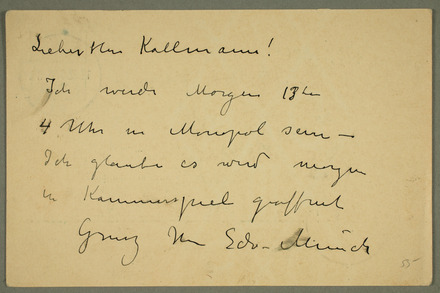 Lieber Herr Kollmann!
Ich werde Morgen 13ten
4 Uhr in Monopol sein –
Ich glaube es wird morgen
in Kammerspiel geöffnet
Gruss Ihr Edv. Munch
55-